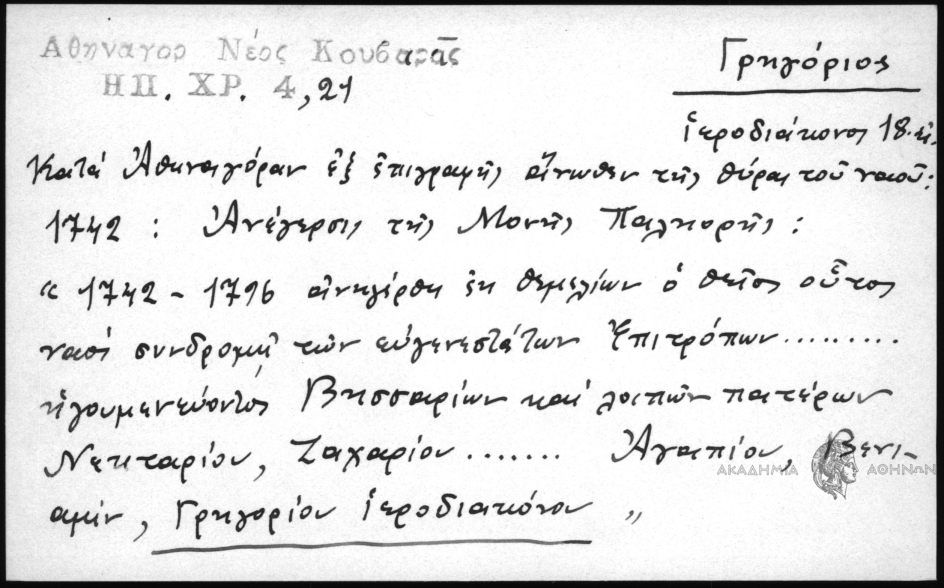 Αθηναγορ Νέος Κουβαρᾶς
ΗΠ. ΧΡ. 4, 21
Γρηγόριος
ἱεροδιάκονος 18. αἰ.
Κατά Ἀθηναγόραν ἐξ ἐπιγραφῆς ἄνωθεν τῆς θύρας τοῦ ναοῦ:
1742 : Ἀνέγερσις τῆς Μονῆς Παλιορῆς :
« 1742 - 1796 ἀνηγέρθη ἐκ θεμελίων ὁ θεῖος οὗτος
ναός συνδρομῇ τῶν εὐγενεστάτων Ἐπιτρόπων .........
ἡγουμενεύοντος Βησσαρίων καί λοιπῶν πατέρων
Νεκταρίου, Ζαχαρίου ....... Ἀγαπίου, Βενι-
αμίν, Γρηγορίου ἱεροδιακόνου „
ΑΚΑΔΗΜΙΑ ΑΘΗΝΩΝ